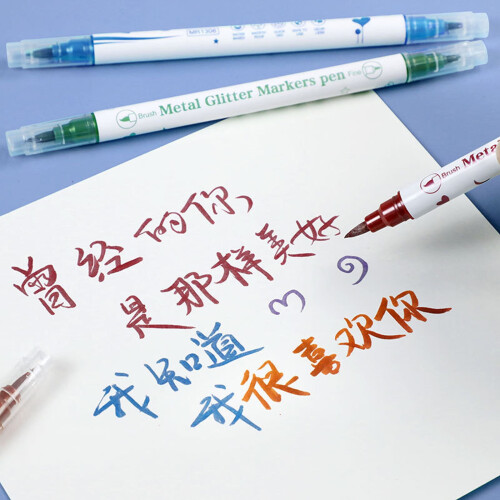 Brush Metal Glitter Markers pen Fine
Brush Metal
曾经的你
是那样美好
我知道
我很喜欢你